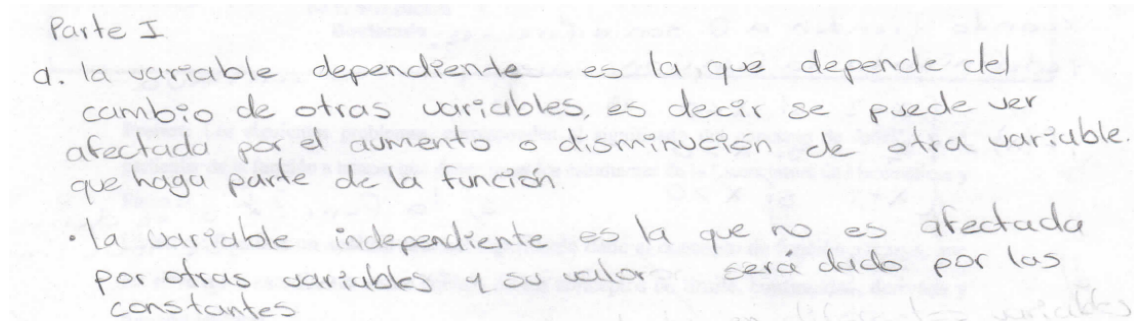 Parte I
a. la variable dependiente es la que depende del
cambio de otras variables, es decir se puede ver
afectada por el aumento o disminución de otra variable.
que haga parte de la función.
• La variable independiente es la que no es afectada
por otras variables y su valor será dado por las
constantes